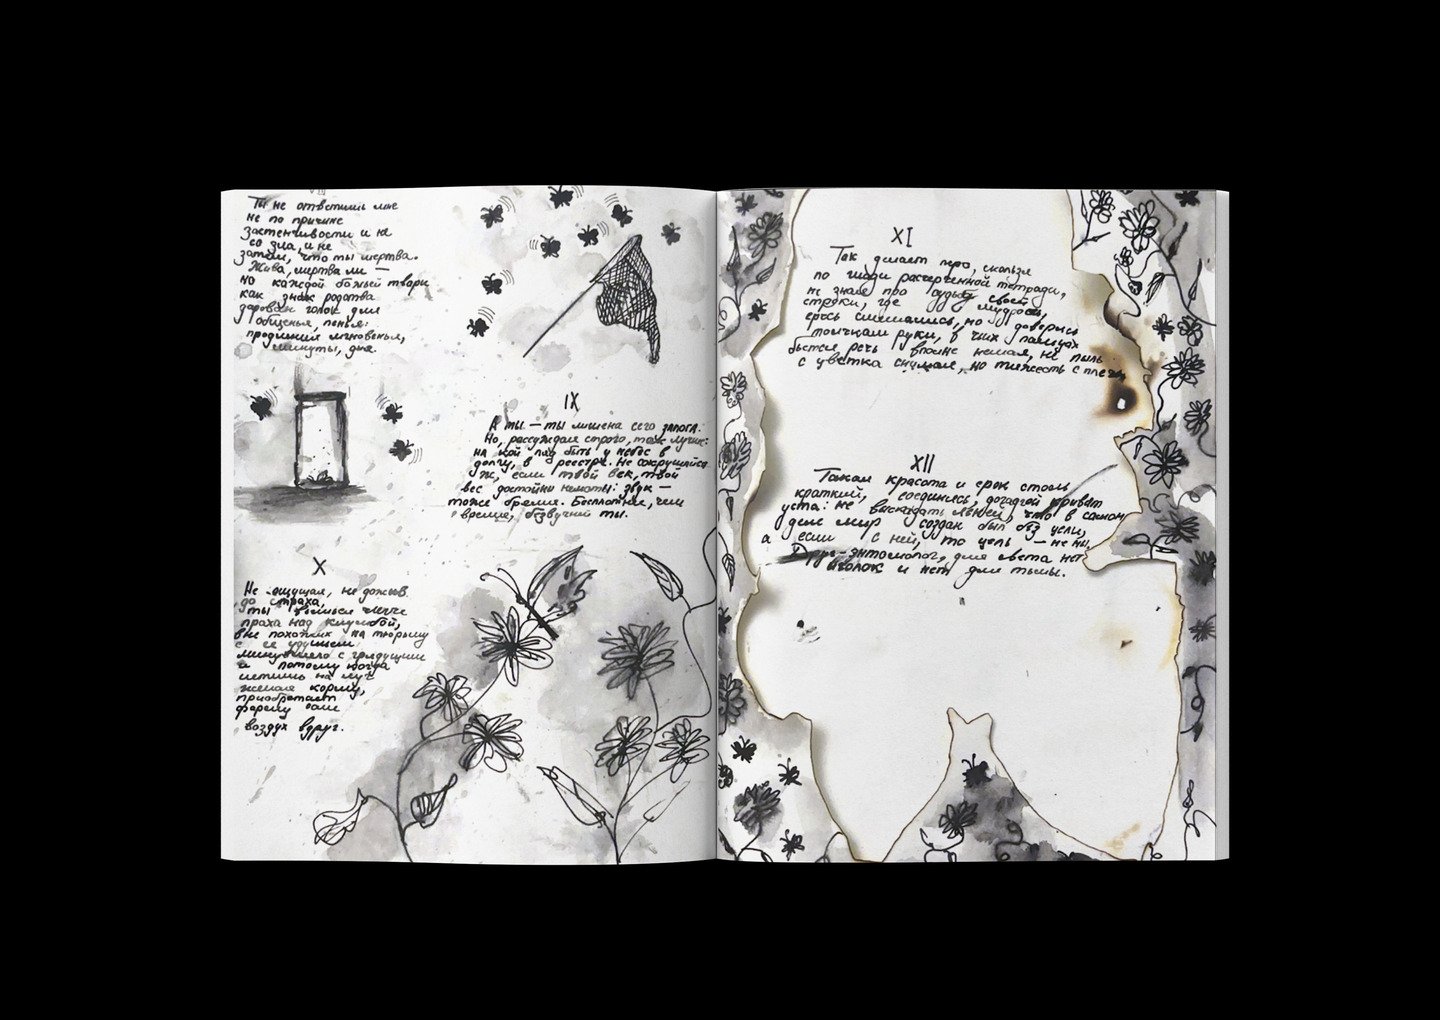 VIII
Ты не ответишь мне
не по причине
застенчивости и не
со зла, и не
затем, что ты мертва.
Жива, мертва ли —
но каждой божьей твари
как знак родства
дарован голос для
общенья, пенья:
продления мгновенья,
минуты, дня.
IX
А ты — ты лишена сего залога.
Но, рассуждая строго, так лучше:
на кой ляд быть у небес в
долгу, в реестре. Не сокрушайся
ж, если твой век, твой
вес достойны немоты: звук —
тоже бремя. Бесплотнее, чем
время, беззвучней ты.
X
Не ощущая, не дожив
до страха,
ты вьешься легче
праха над клумбой,
вне похожих на тюрьму
с ее удушьем
минувшего с грядущим
и потому когда
летишь на луг
желая корму,
приобретает
форму сам
воздух вдруг.
XI
Так делает перо, скользя
по глади расчерченной тетради,
не зная про судьбу своей
строки, где мудрость,
ересь смешались, но доверясь
толчкам руки, в чьих пальцах
бьется речь вполне немая, не пыль
с цветка снимая, но тяжесть с плеч.
XII
Такая красота и срок столь
краткий, соединясь, догадкой кривят
уста: не высказать ясней, что в самом
деле мир создан был без цели,
а если с ней, то цель — не мы.
Друг-энтомолог, для света нет
иголок и нет для тьмы.